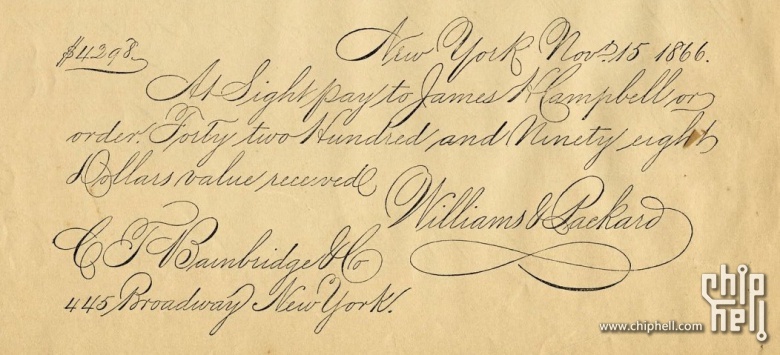 $4298. New York Nov. 15 1866.
At Sight pay to James H Campbell or
order. Forty two Hundred and Ninety eight
Dollars value received
Williams & Packard
C T Bainbridge & Co
445 Broadway New York.
chip
hell
www.chiphell.com